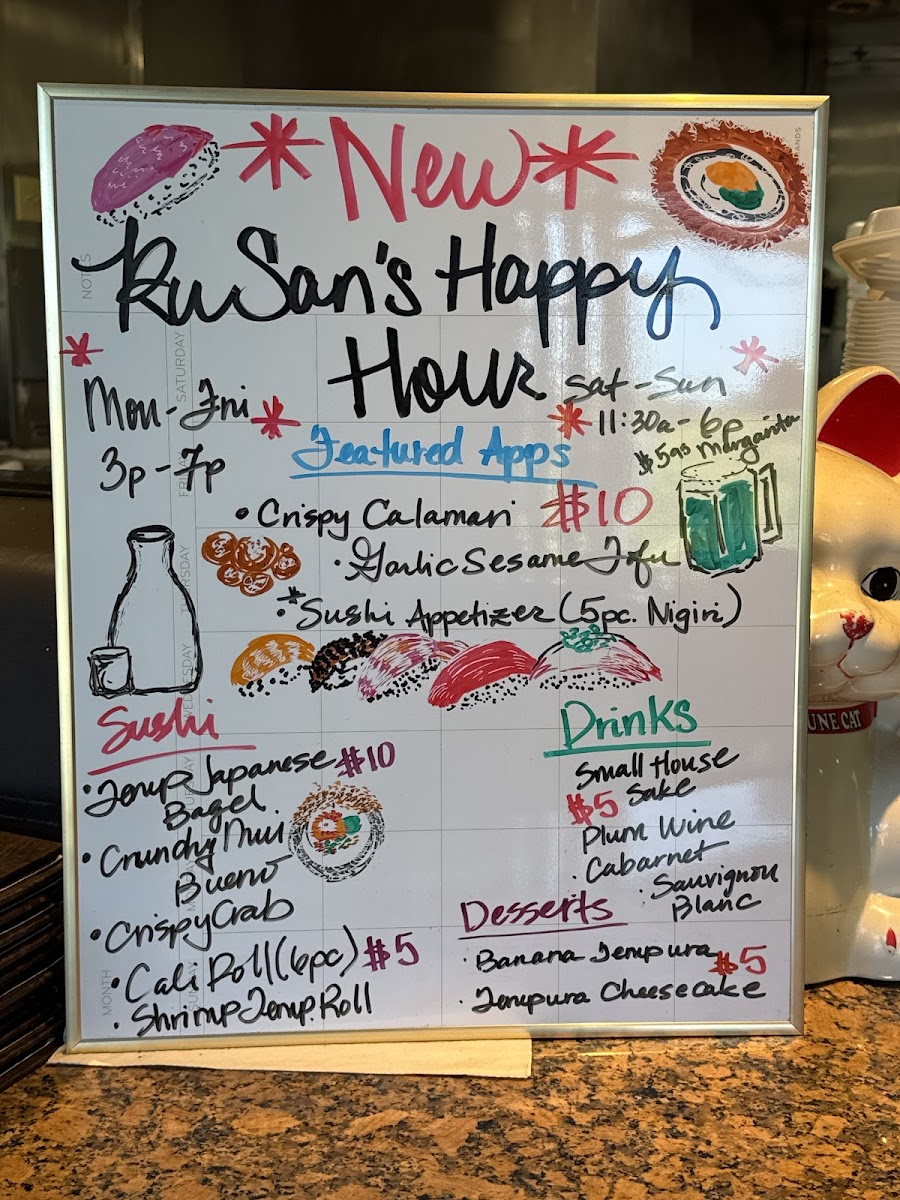 * New *
RuSan's Happy
Hour
Mon-Fri
3p-7p
Sat-Sun
11:30a-6p
Featured Apps
• Crispy Calamari $10
· Garlic Sesame Tofu
·* Sushi Appetizer (5pc. Nigiri)
Margarita
Sushi
· Temp Japanese $10
Bagel
• Crunchy Mui
Bueno
• Crispy Crab
• Cali Roll (6pc) $5
• Shrimp Temp. Roll
Drinks
Small House
$5 Sake
Plum Wine
· Cabarnet
· Sauvignon
Blanc
Desserts
· Banana Tempura $5
· Tempura Cheesecake
NOTES
SATURDAY
FRIDAY
THURSDAY
WEDNESDAY
TUESDAY
MONTH
UNE CAT